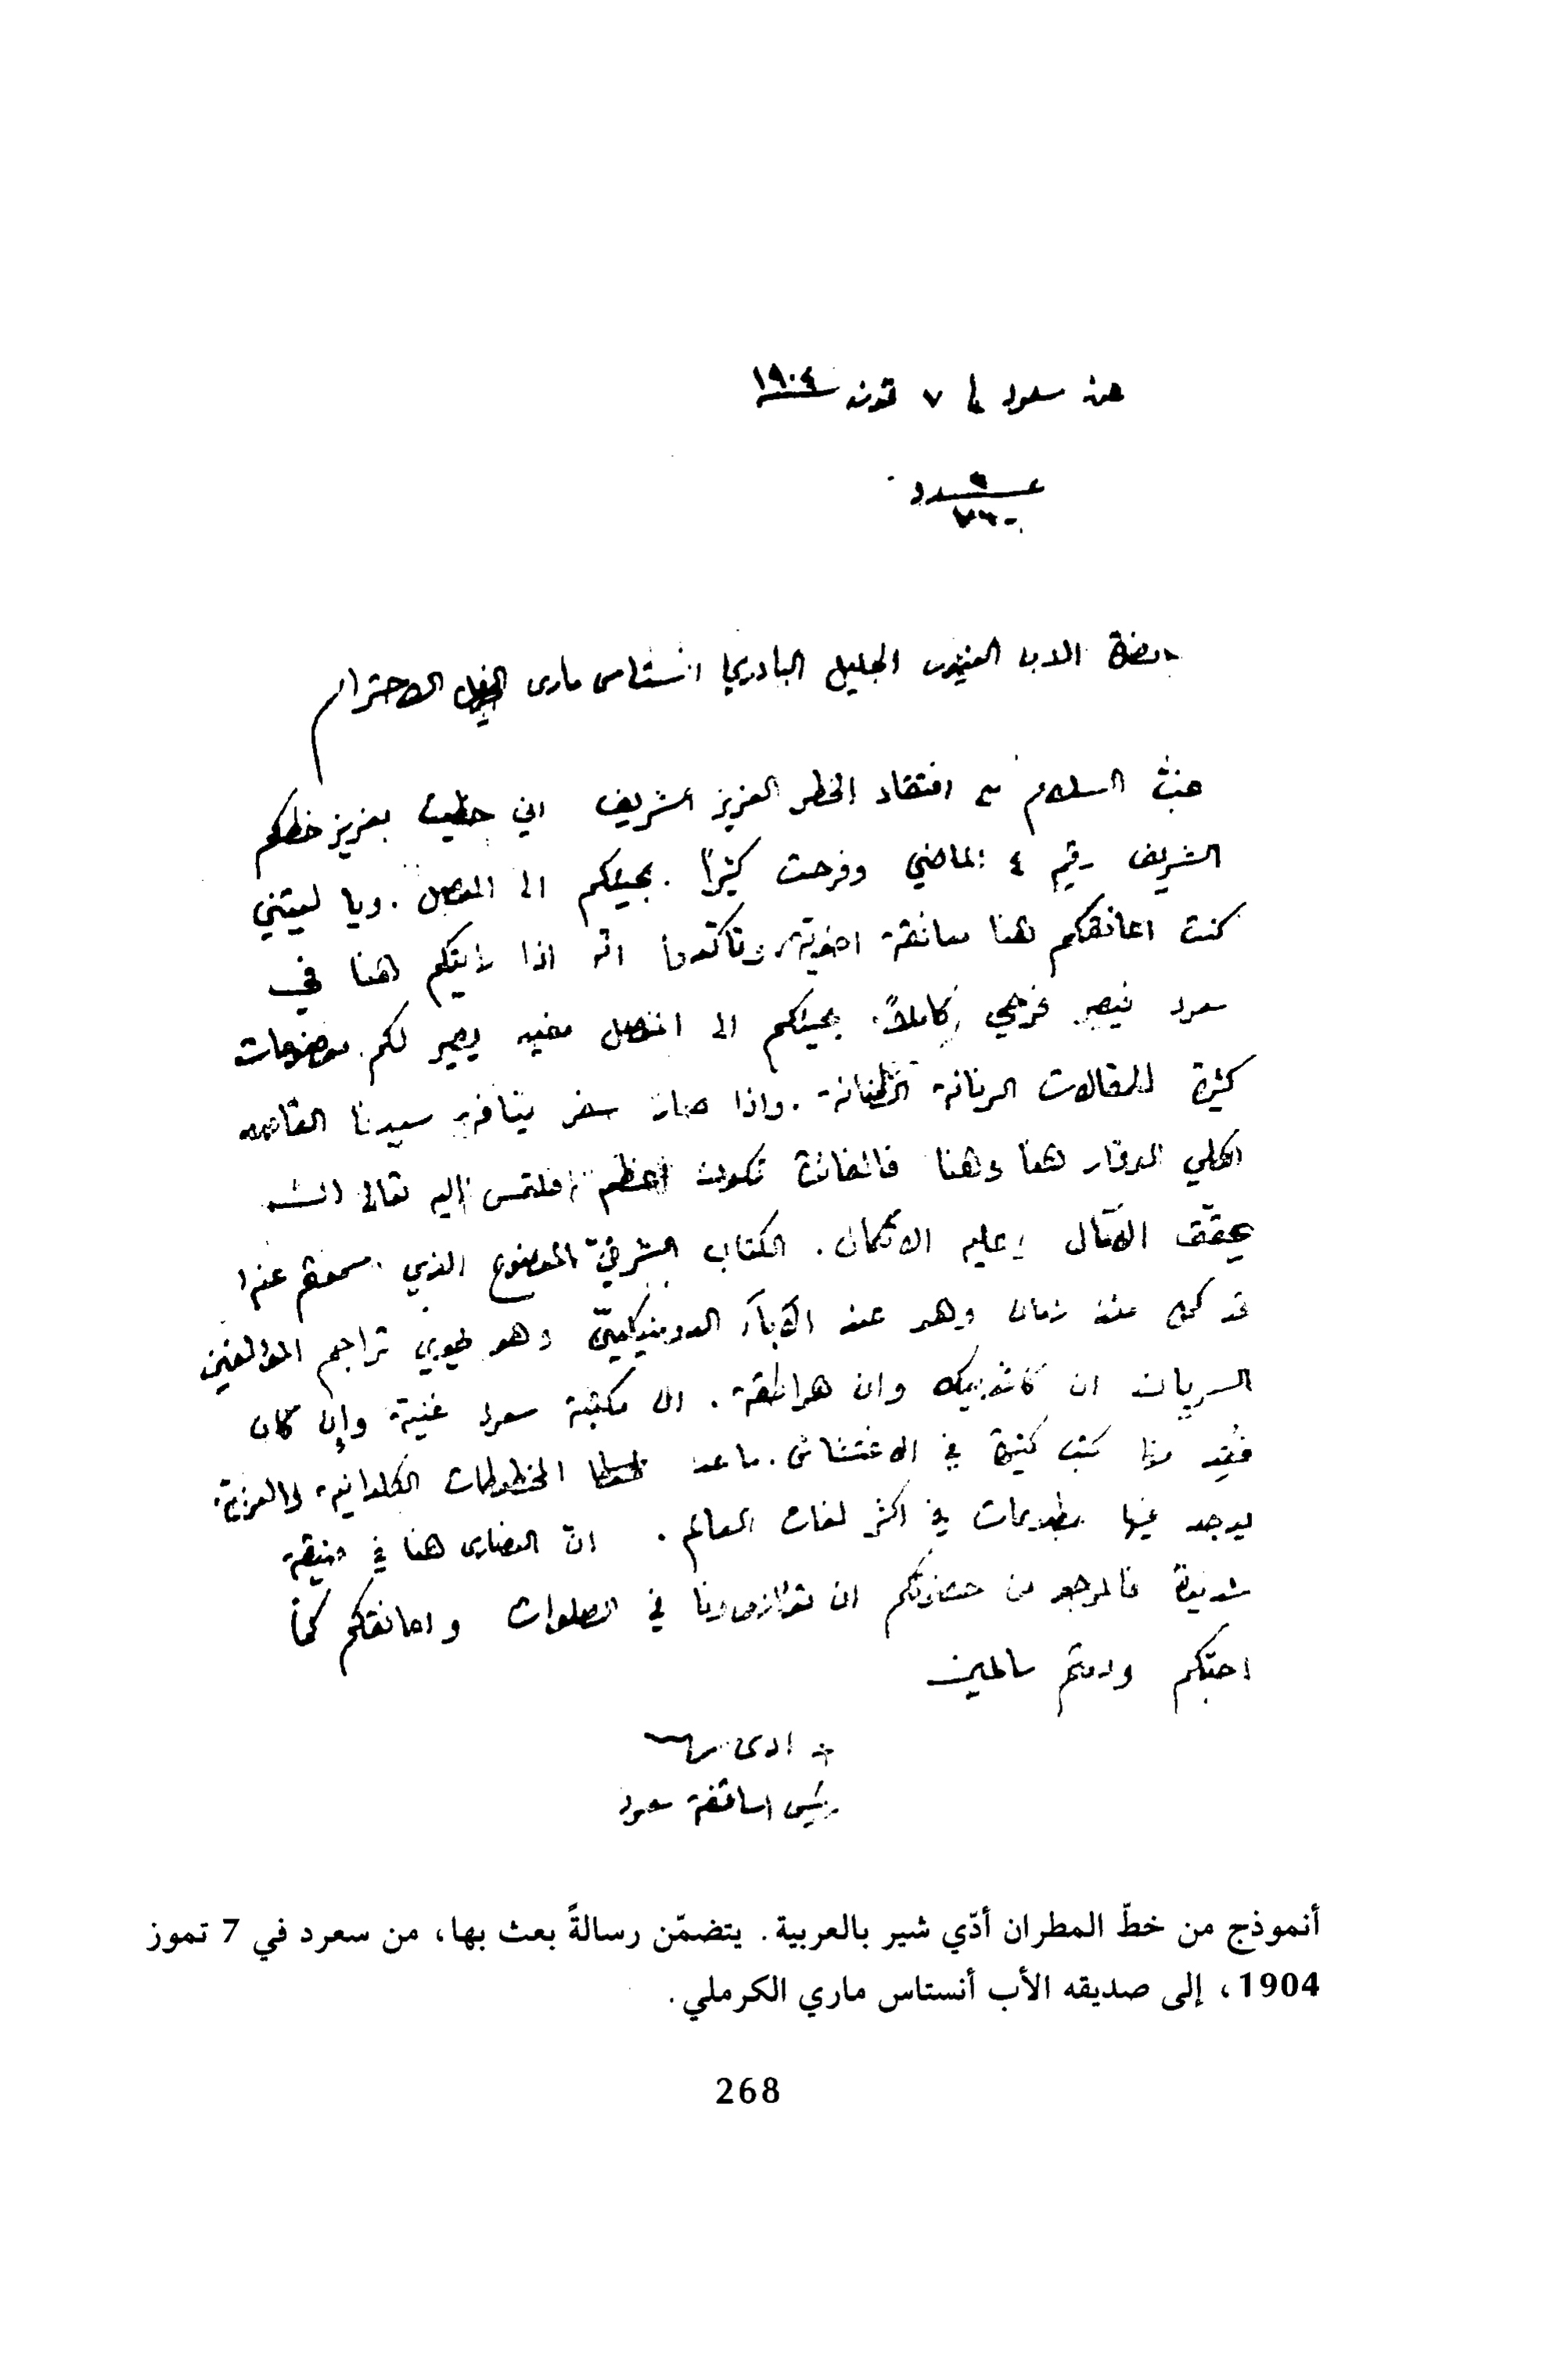 من سعرد في ٧ تموز ١٩٠٤
عدد
حضرة الاب الغيور الجليل البادري انستاس ماري الجزيل الاحترام
غبّ السلام مع افتقاد الخاطر العزيز الشريف اني حظيت بعزيز خطكم
الشريف رقيم ٤ الماضي وفرحت كثيرًا بمجيئكم الى الموصل. ويا ليتني
كنت اعانقكم هنا معانقة اخوية وتأكدوا انه اذا رايتكم هنا في
سعرد فيصير فرحي كاملاً. بمجيئكم الى الموصل يصير لكم موضوعات
كثيرة للمقالات الرنانة الطنانة. واذا صار سفر سيدنا القاصد
الكلي الوقار هنا وهنا فالفائدة تكون اعظم فلتمس اليه تعالى
يحقق الآمال وعليه الاتكال. الكتاب الموضوع الذي سمعتم عنه
قد كمل منذ زمان وهو عند الآباء الدومنيكيين وهو يحوي تراجم المؤلفين
السريان ان كاثوليك وان هراطقة. ان مكتبة سعرد غنية وإن كان
فُقِد منها كتب كثيرة في الاغتشاش. ما عدا المخطوطات الكلدانية والعربية
يوجد فيها مطبوعات في اكثر لغات العالم. انّ النصارى هنا في ضيقة
شديدة فالمرجو من حضرتكم ان تؤازرونا في الصلوات واعانقكم كما
احبكم ودمتم سالمين
+ ادى
رئيس اساقفة سعرد
أنموذج من خطّ المطران أدّي شير بالعربية. يتضمّن رسالةً بعث بها، من سعرد في 7 تموز
1904، إلى صديقه الأب أنستاس ماري الكرملي.
268